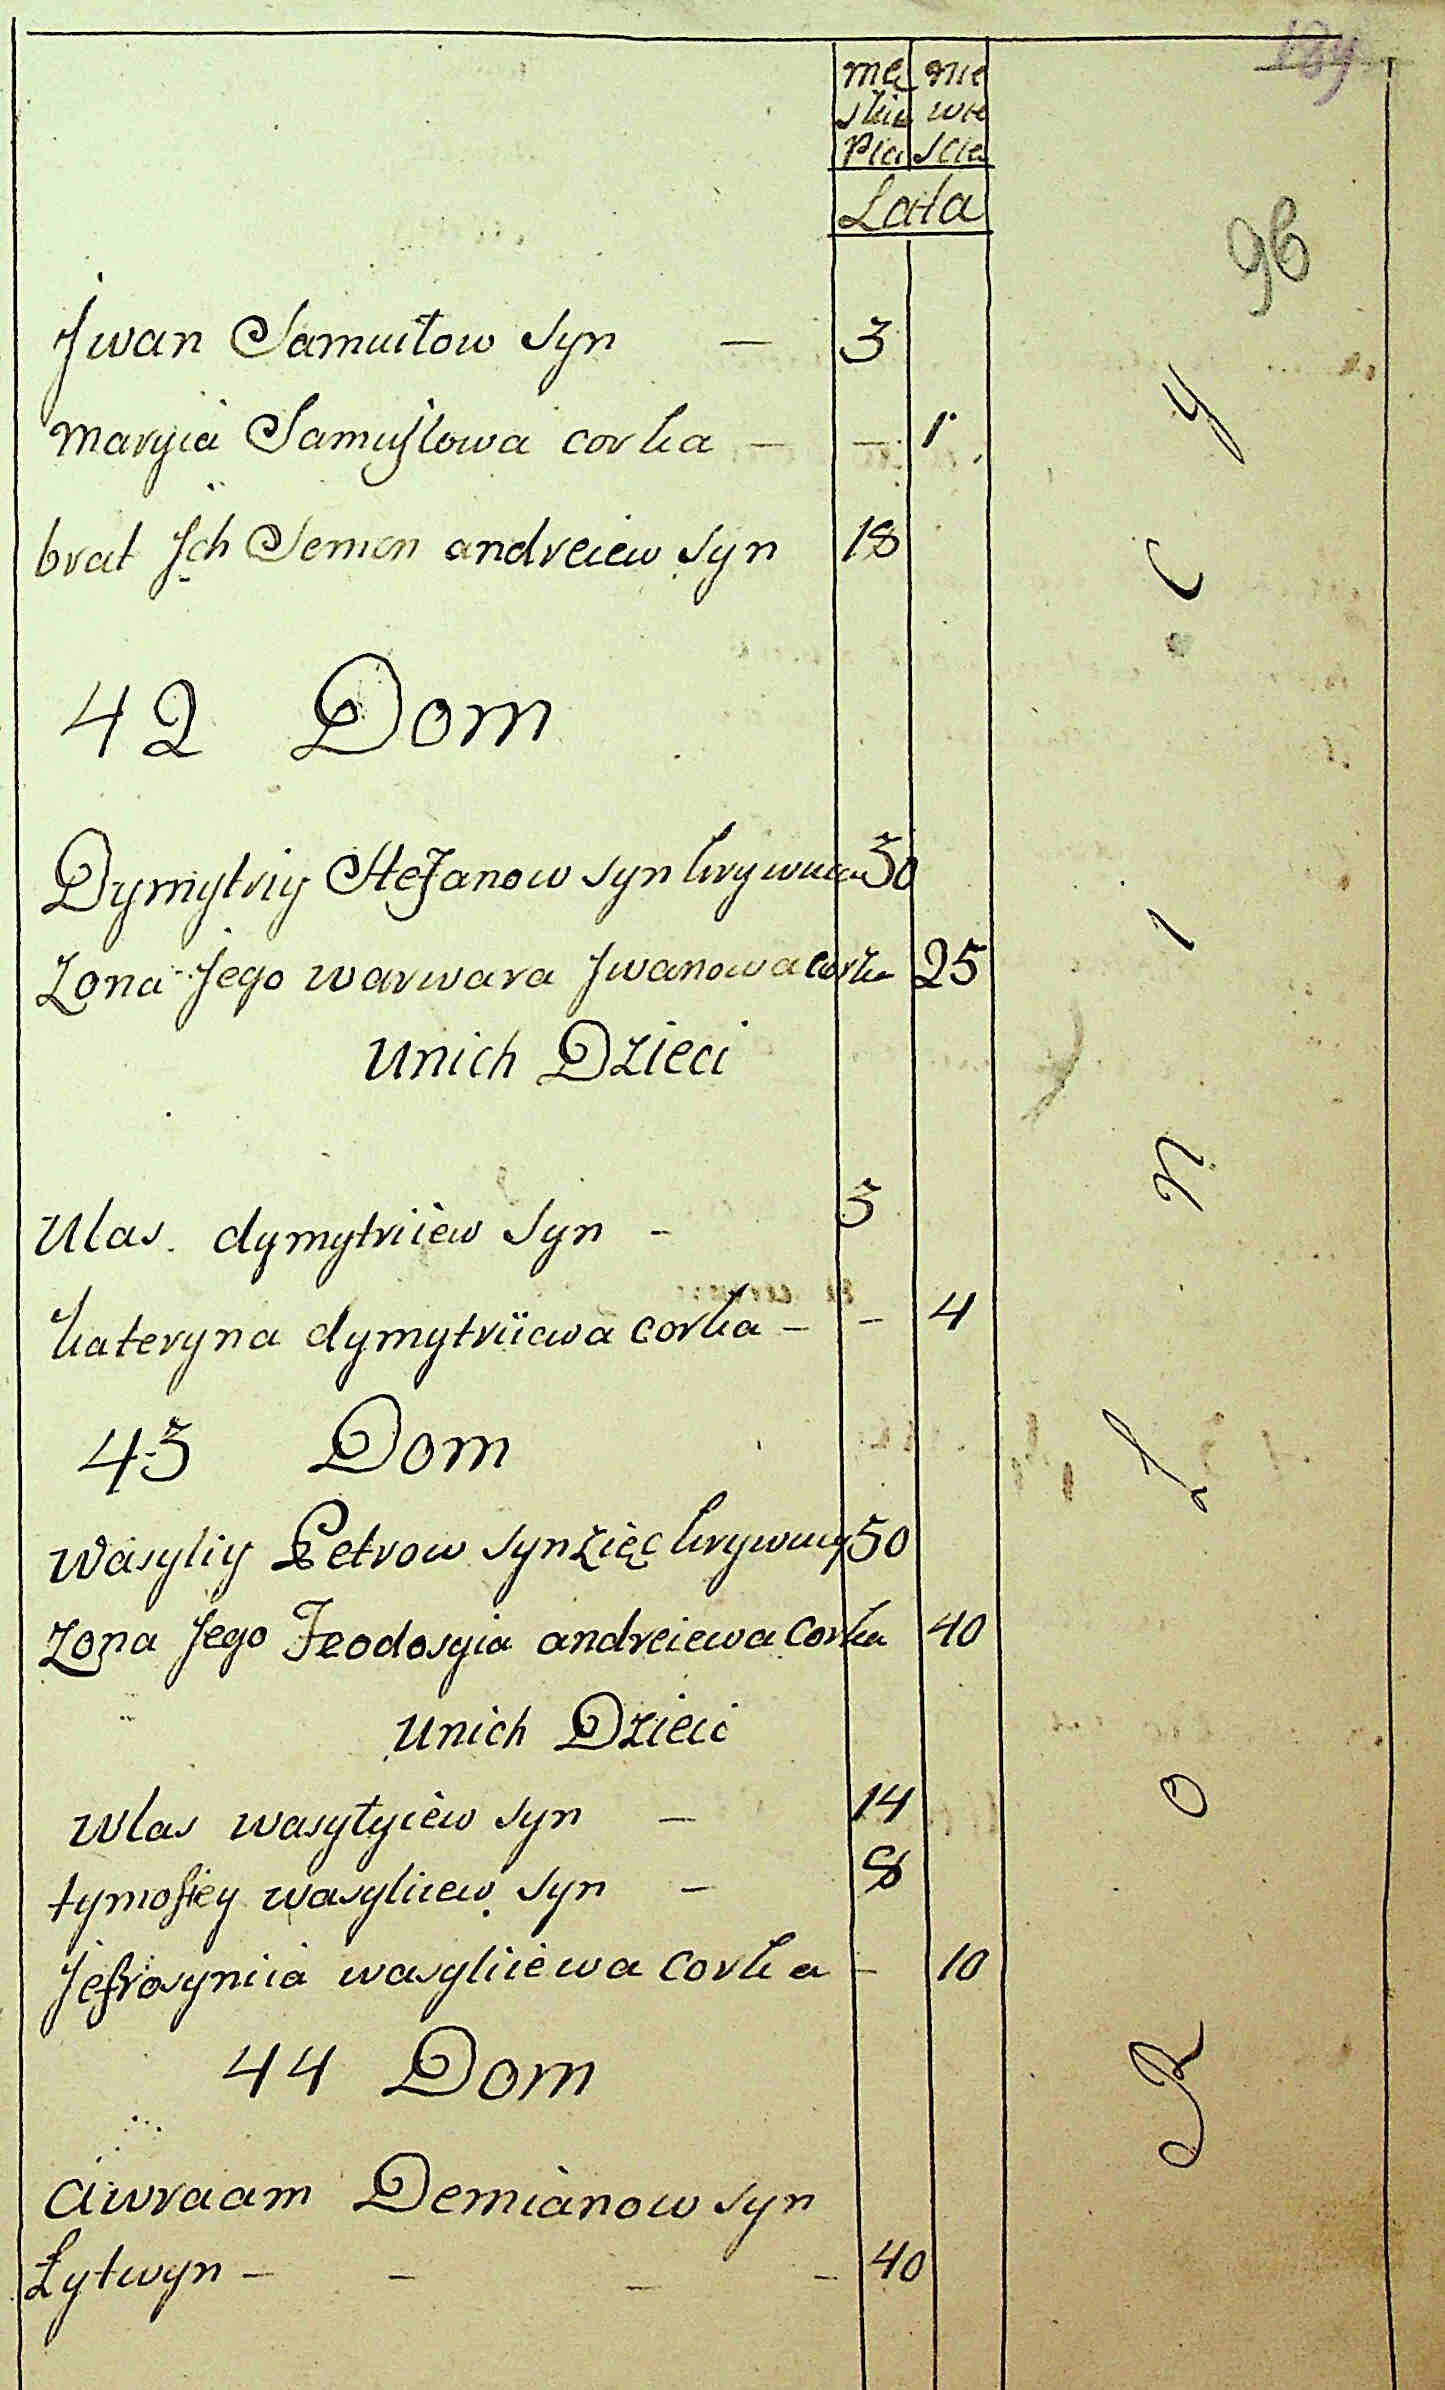 189
96
mę nie
skie wie
Plci scie
Lata
Jwan Samuiłow Syn — 3
Maryia Samuyłowa corka — — 1
brat Jch Semen andreiew Syn 18
42 Dom
Dymytriy Stefanow syn 30
Zona Jego warwara Jwanowa corka 25
Unich Dzieci
Ulas dymytriiew Syn - 3
kateryna dymytriiewa corka - - 4
43 Dom
Wasyliy Petrow syn zięc 50
Zona Jego Feodosyia andreiewa Corka 40
Unich Dzieci
Wlas wasyłyiew syn — 14
tymofiey wasyliiew syn - 8
Jefrosyniia wasyliiewa Corka - 10
44 Dom
Awraam Demianow syn
Łytwyn - - - - 40
R o l n i c y